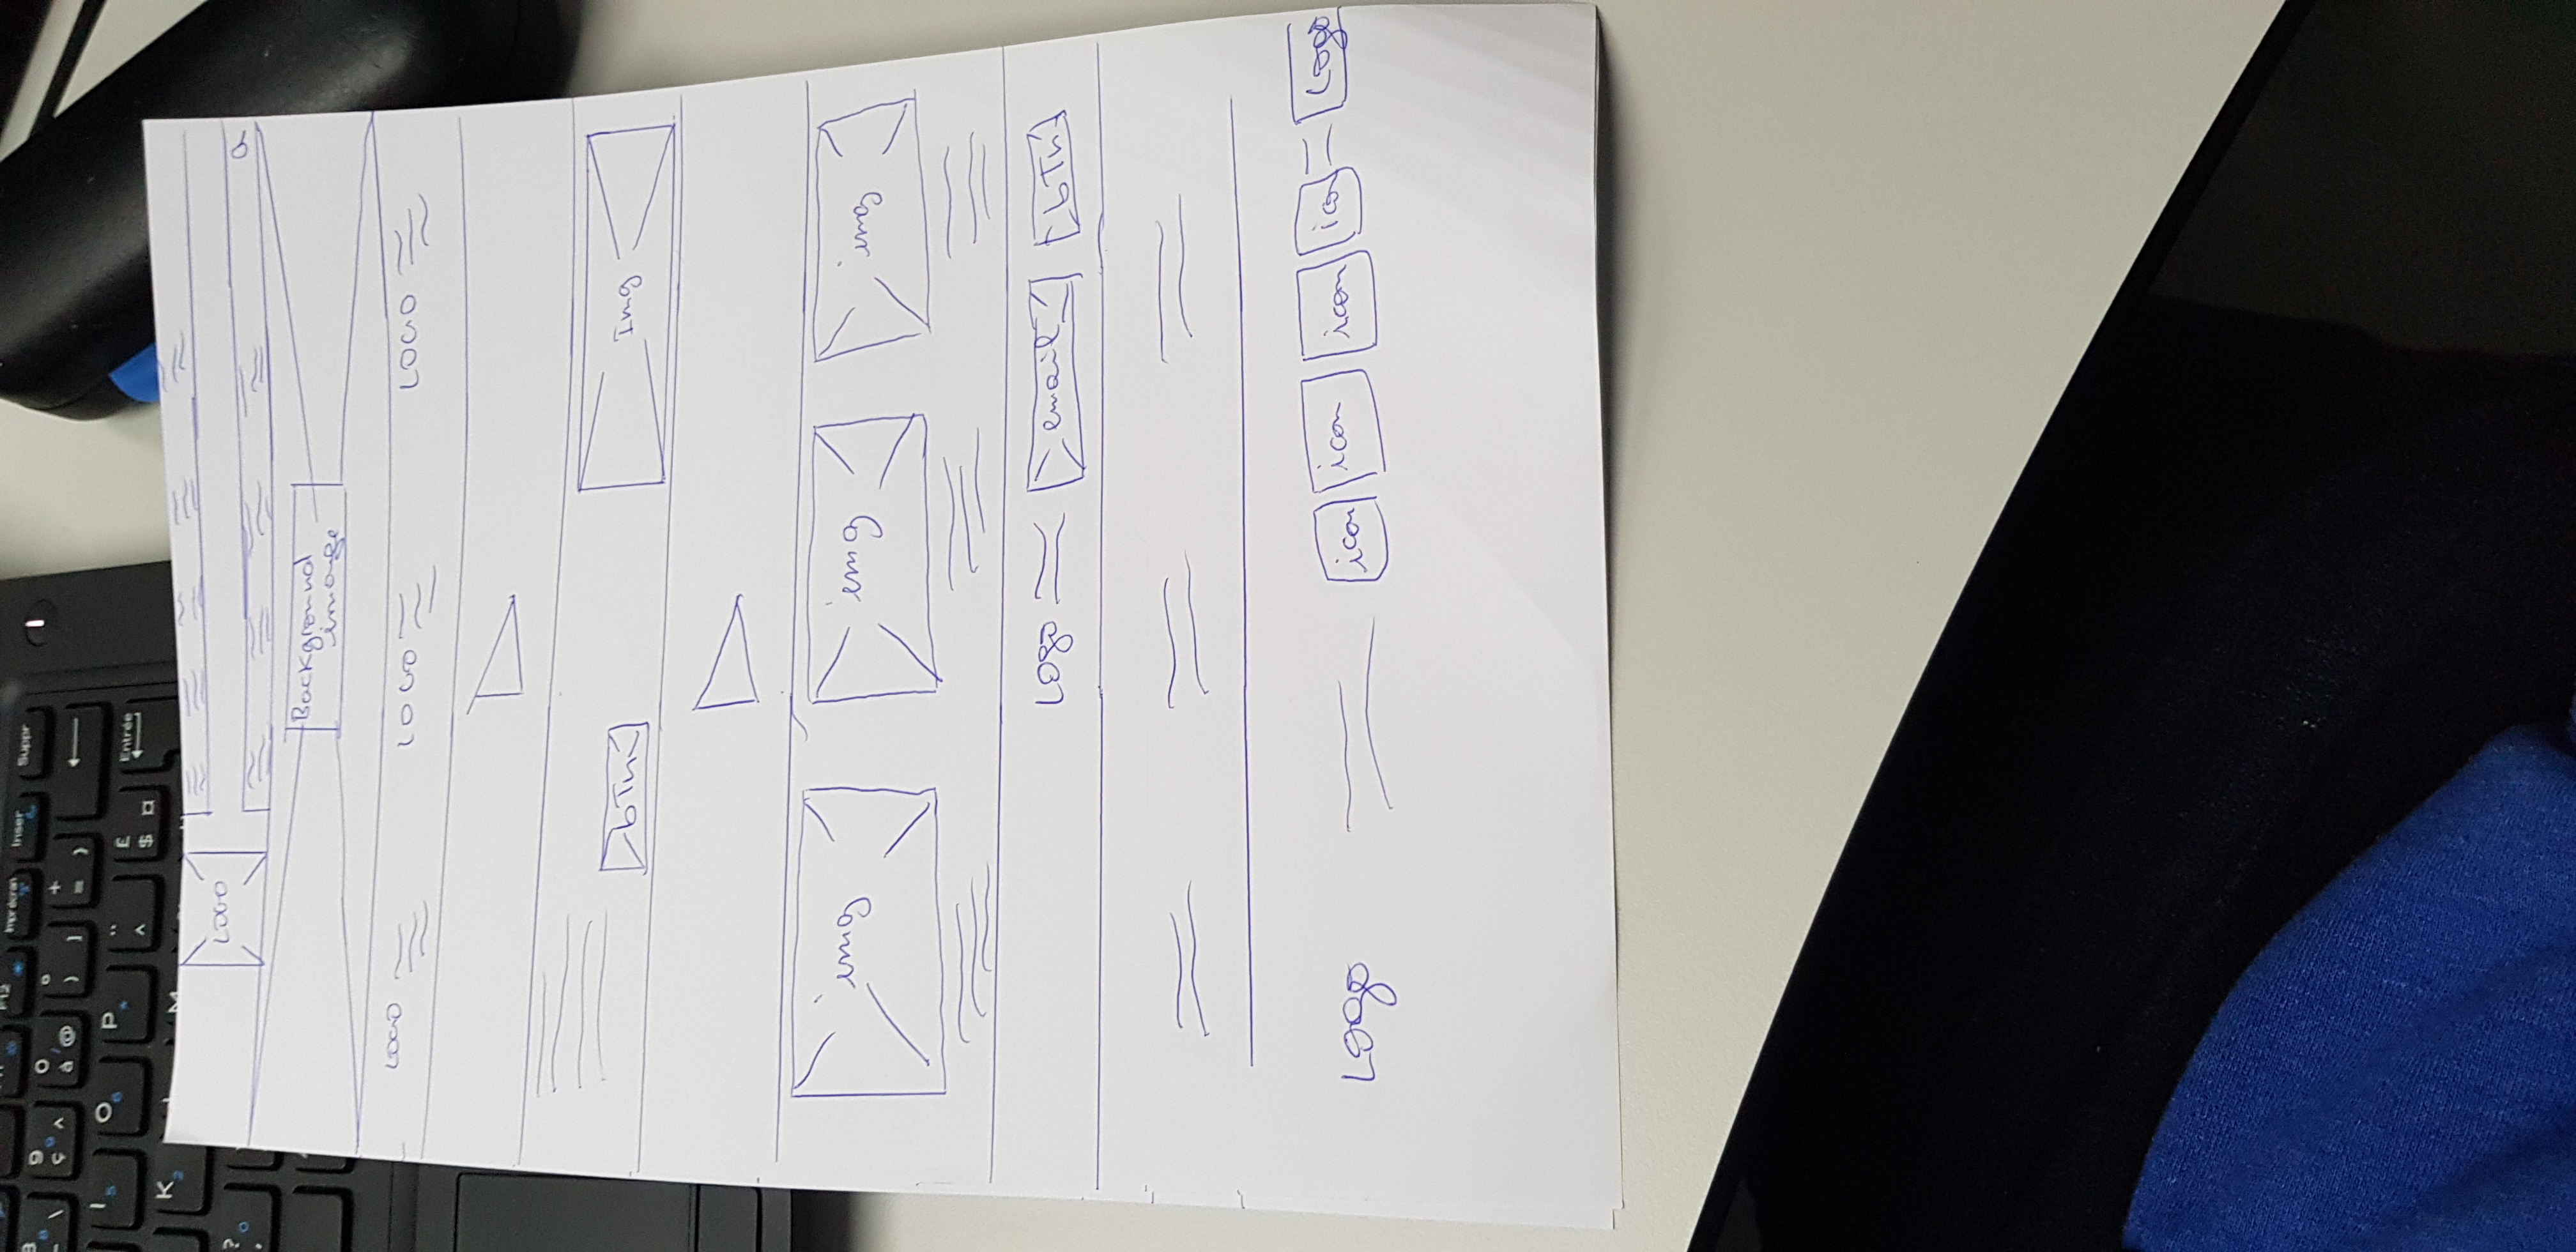 F12 Impr écran Inser Suppr
9 ç ^ 0 à @ ° ) ] + = }
I 5 O 6 P * ¨ ^ £ $ ¤ Entrée
K 2 M
?
LOGO
Q
Background
image
LOGO LOGO LOGO
bTn Img
img img img
Logo email bTn
Logo icon icon icon icon Logo